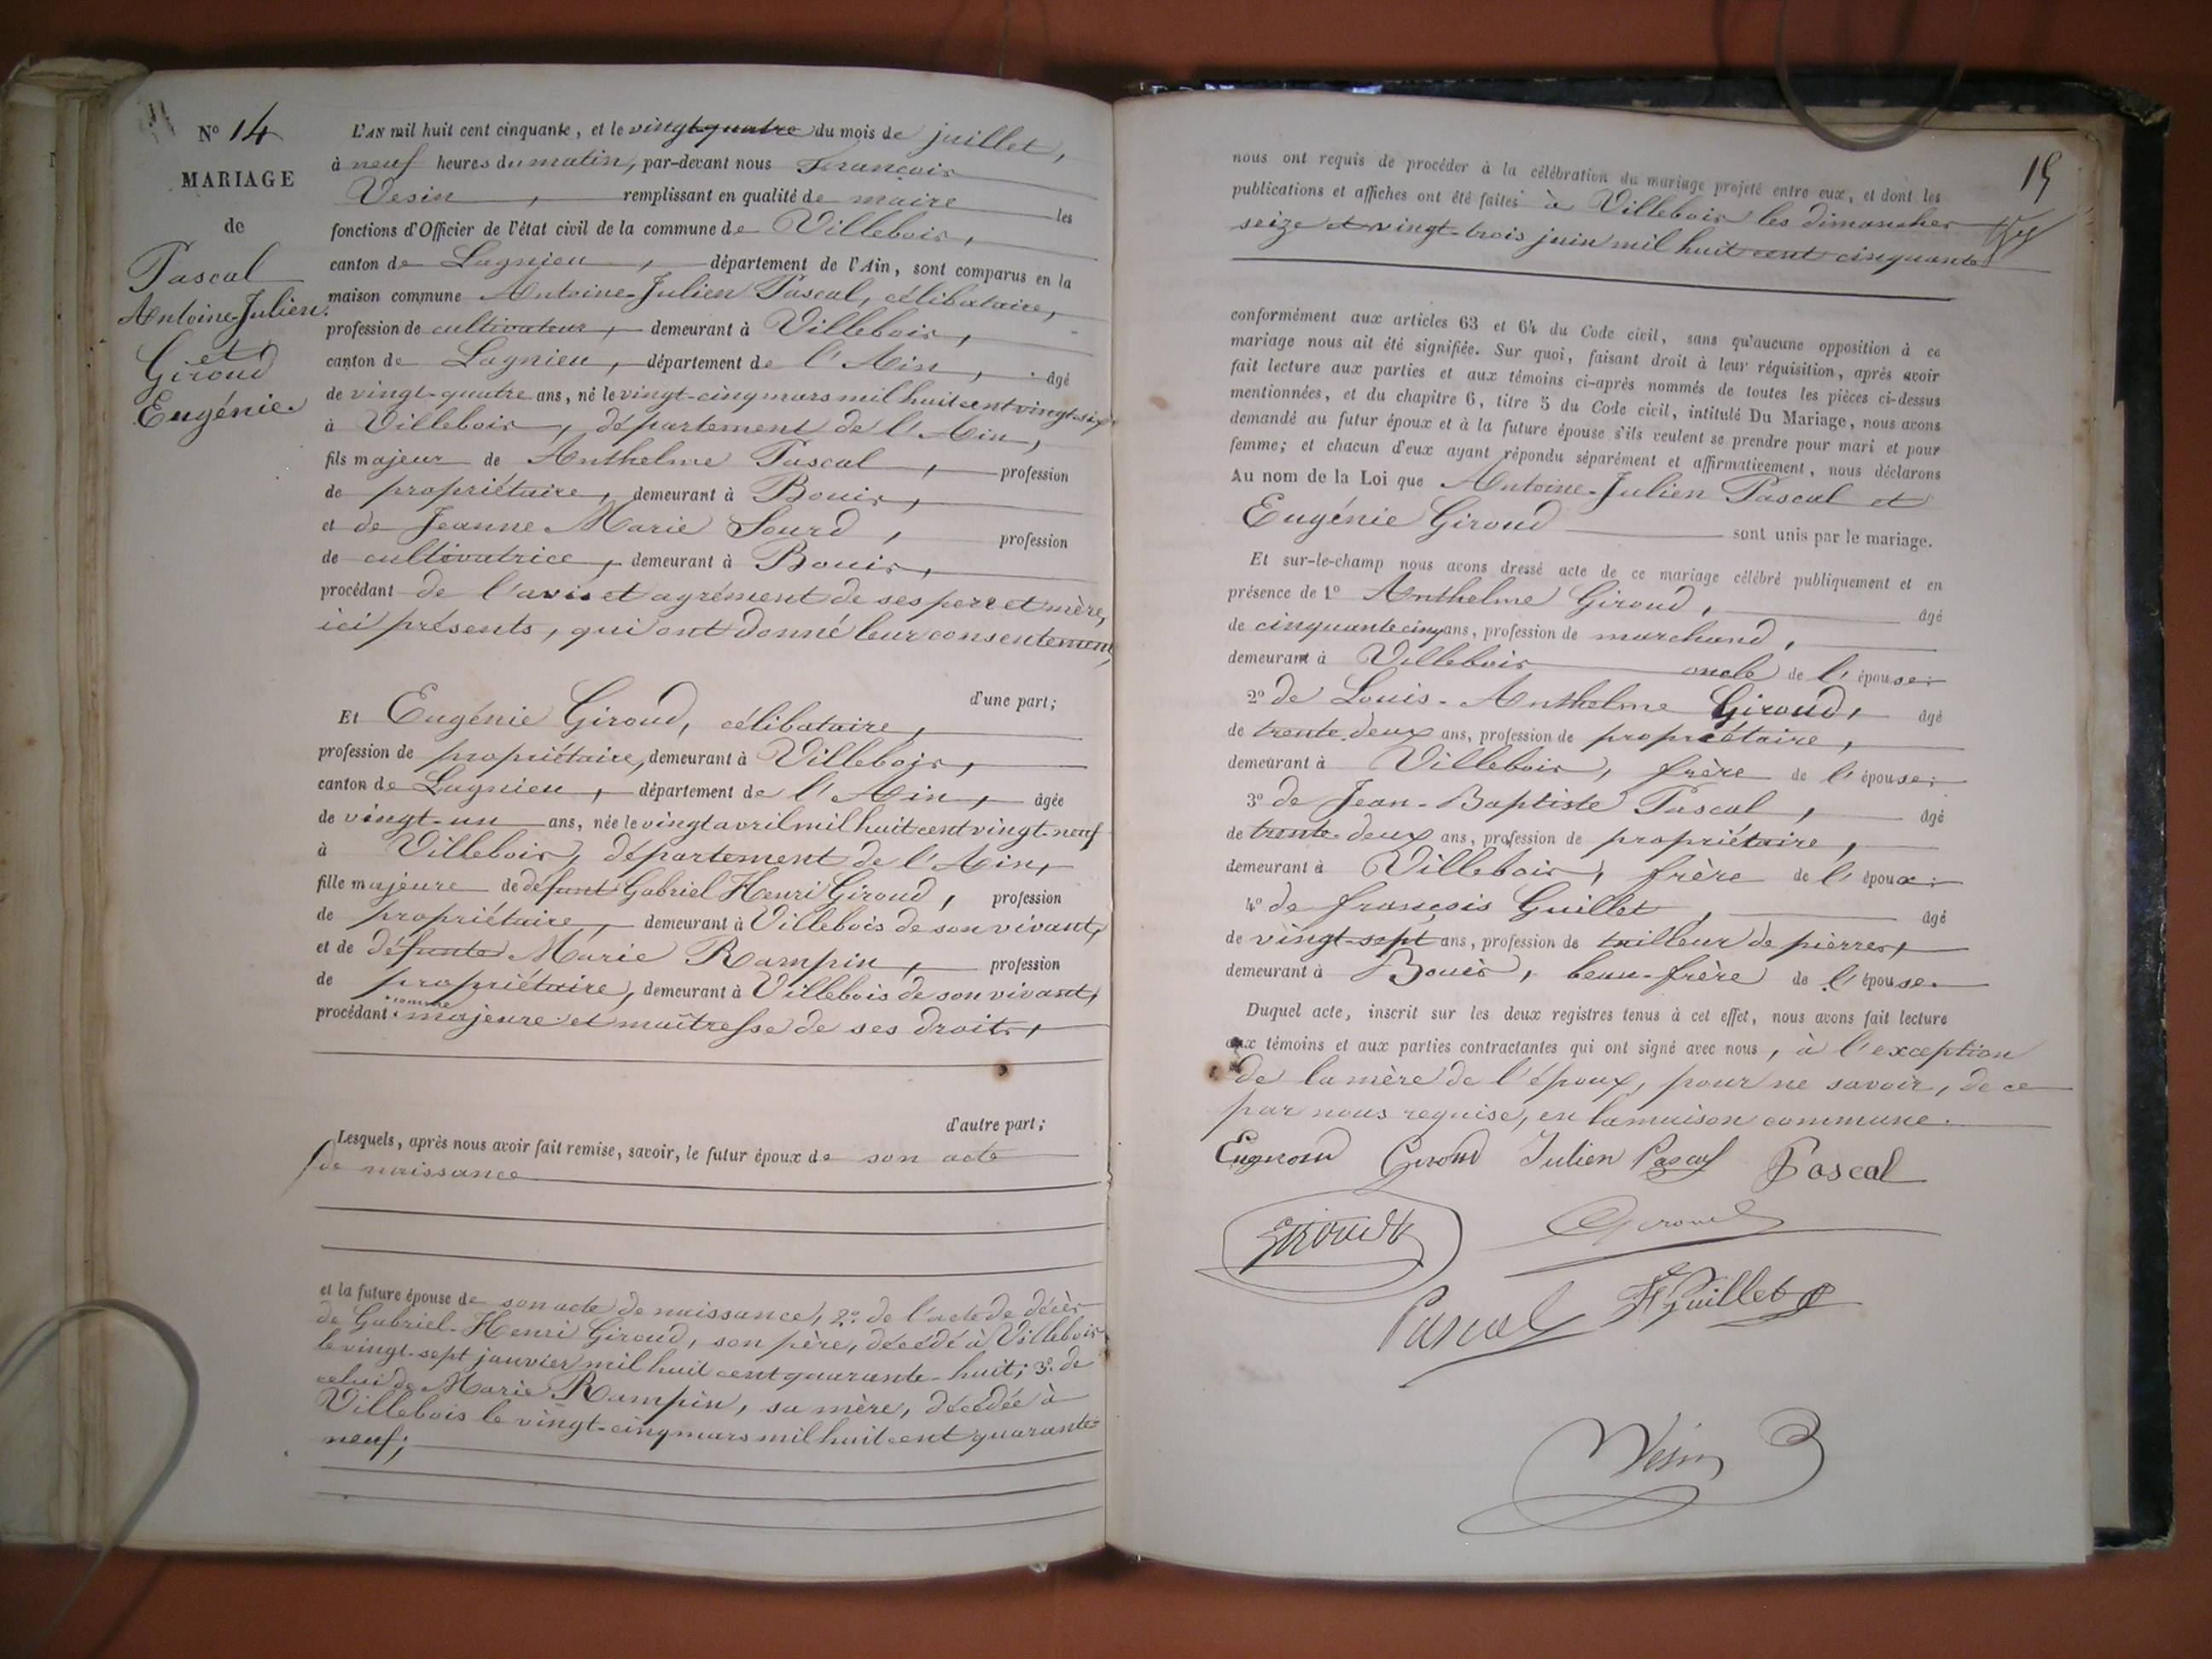 N° 14
MARIAGE
de
Pascal
Antoine-Julien.
et
Giroud
Eugénie.
L'AN mil huit cent cinquante, et le vingt-quatre du mois de juillet,
à neuf heures du matin, par-devant nous François
Vesin, remplissant en qualité de maire les
fonctions d'Officier de l'état civil de la commune de Villebois,
canton de Lagnieu, département de l'Ain, sont comparus en la
maison commune Antoine-Julien Pascal, célibataire,
profession de cultivateur, demeurant à Villebois,
canton de Lagnieu, département de l'Ain, âgé
de vingt-quatre ans, né le vingt-cinq mars mil huit cent vingt-six
à Villebois, département de l'Ain,
fils majeur de Anthelme Pascal, profession
de propriétaire, demeurant à Bouis,
et de Jeanne-Marie Sourd, profession
de cultivatrice, demeurant à Bouis,
procédant de l'avis et agrément de ses père et mère,
ici présents, qui ont donné leur consentement,
d'une part;
Et Eugénie Giroud, célibataire,
profession de propriétaire, demeurant à Villebois,
canton de Lagnieu, département de l'Ain, âgée
de vingt-un ans, née le vingt avril mil huit cent vingt-neuf
à Villebois, département de l'Ain,
fille majeure de défunt Gabriel Henri Giroud, profession
de propriétaire, demeurant à Villebois de son vivant,
et de défunte Marie Rampin, profession
de propriétaire, demeurant à Villebois de son vivant,
procédant comme majeure et maîtresse de ses droits,
d'autre part;
Lesquels, après nous avoir fait remise, savoir, le futur époux de son acte
de naissance
et la future épouse de son acte de naissance, 2° de l'acte de décès
de Gabriel-Henri Giroud, son père, décédé à Villebois
le vingt-sept janvier mil huit cent quarante-huit; 3° de
celui de Marie Rampin, sa mère, décédée à
Villebois le vingt-cinq mars mil huit cent quarante-
neuf;
15
nous ont requis de procéder à la célébration du mariage projeté entre eux, et dont les
publications et affiches ont été faites à Villebois les dimanches
seize et vingt-trois juin mil huit cent cinquante
conformément aux articles 63 et 64 du Code civil, sans qu'aucune opposition à ce
mariage nous ait été signifiée. Sur quoi, faisant droit à leur réquisition, après avoir
fait lecture aux parties et aux témoins ci-après nommés de toutes les pièces ci-dessus
mentionnées, et du chapitre 6, titre 5 du Code civil, intitulé Du Mariage, nous avons
demandé au futur époux et à la future épouse s'ils veulent se prendre pour mari et pour
femme; et chacun d'eux ayant répondu séparément et affirmativement, nous déclarons
Au nom de la Loi que Antoine-Julien Pascal et
Eugénie Giroud sont unis par le mariage.
Et sur-le-champ nous avons dressé acte de ce mariage célébré publiquement et en
présence de 1° Anthelme Giroud, âgé
de cinquante cinq ans, profession de marchand,
demeurant à Villebois oncle de l'épouse;
2° de Louis-Anthelme Giroud, âgé
de trente-deux ans, profession de propriétaire,
demeurant à Villebois, frère de l'épouse;
3° de Jean-Baptiste Pascal, âgé
de trente-deux ans, profession de propriétaire,
demeurant à Villebois, frère de l'époux;
4° de françois Guillet, âgé
de vingt-sept ans, profession de tailleur de pierres,
demeurant à Bouis, beau-frère de l'épouse.
Duquel acte, inscrit sur les deux registres tenus à cet effet, nous avons fait lecture
aux témoins et aux parties contractantes qui ont signé avec nous, à l'exception
de la mère de l'époux, pour ne savoir, de ce
par nous requise, en la maison commune.
Giroud Julien Pascal Pascal
Giroud Giroud
Pascal Fs Guillet
Vesin